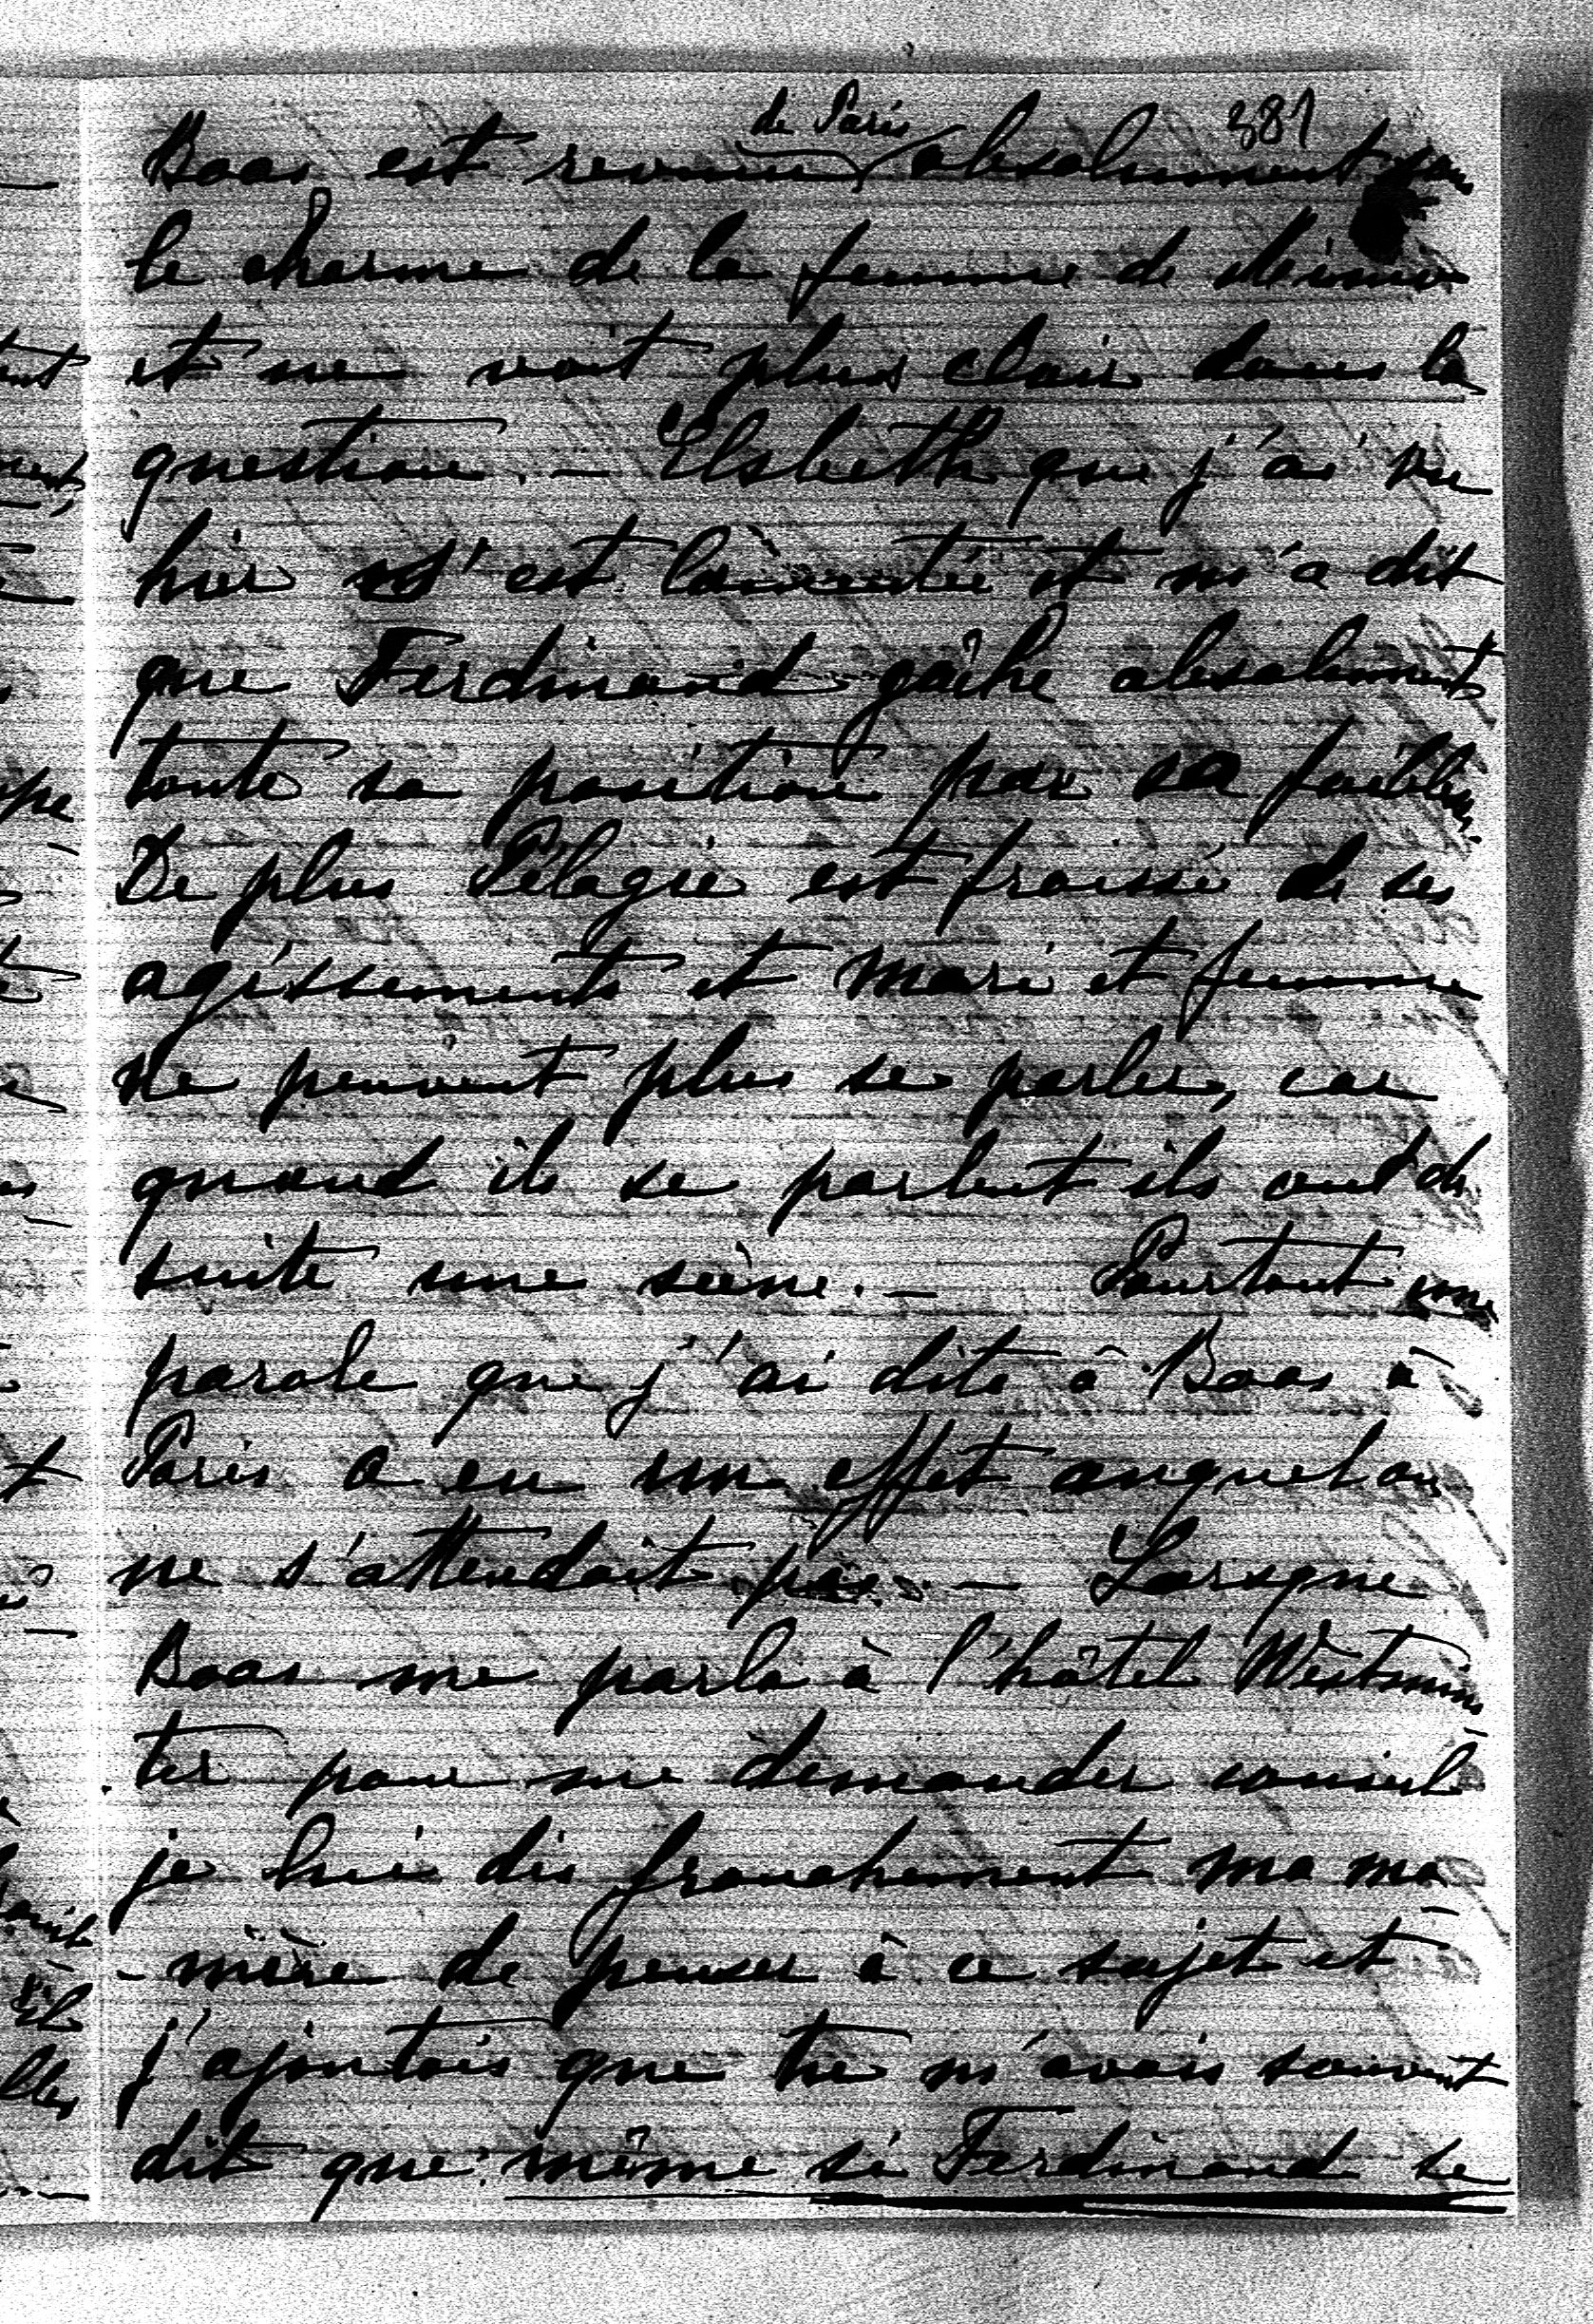 381
Boas est revenu de Paris absolument sous
le charme de la femme de
et ne voit plus clair dans la
question. - Elsbeth que j'ai vu
hier s'est lamentée et m'a dit
que Ferdinand gâche absolument
toute sa position par sa faiblesse.
De plus Pélagie est froissé de ses
agissements et mari et femme
ne peuvent plus se parler, car
quand ils se parlent ils ont de
suite une scène. - Pourtant une
parole que j'ai dite à Boas à
Paris a eu un effet auquel on
ne s'attendait pas. - Lorsque
Boas me parla à l'hôtel Westmins
ter pour me demander conseil
je lui dis franchement ma ma
-nière de penser à ce sujet et
j'ajoutais que tu m'avais souvent
dit que même si Ferdinand se